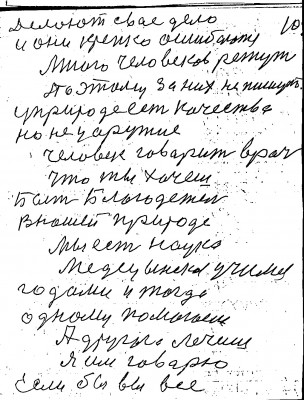 делоют свае дело 10
и они крепко ошибаютц
Много человеков режут
Поэтому за них не пишут
у природе ест качества
но не царужие
человек говарит врач
что ты хочеш
Бит Благодетел
в нашей природе
Мы ест наука
Медецынска учимся
годами и тогда
одному помогаем
А другого лечим
Я им говарю
Если бы вы все